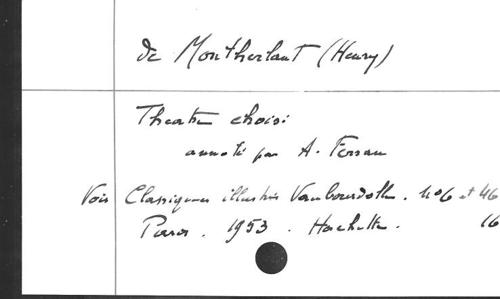 de Montherlant (Henry)
Theatre choisi
annoté par A. Ferran
Voir Classiques illustrés Vaubourdolle. N°6 et 46
Paris. 1953. Hachette. 16